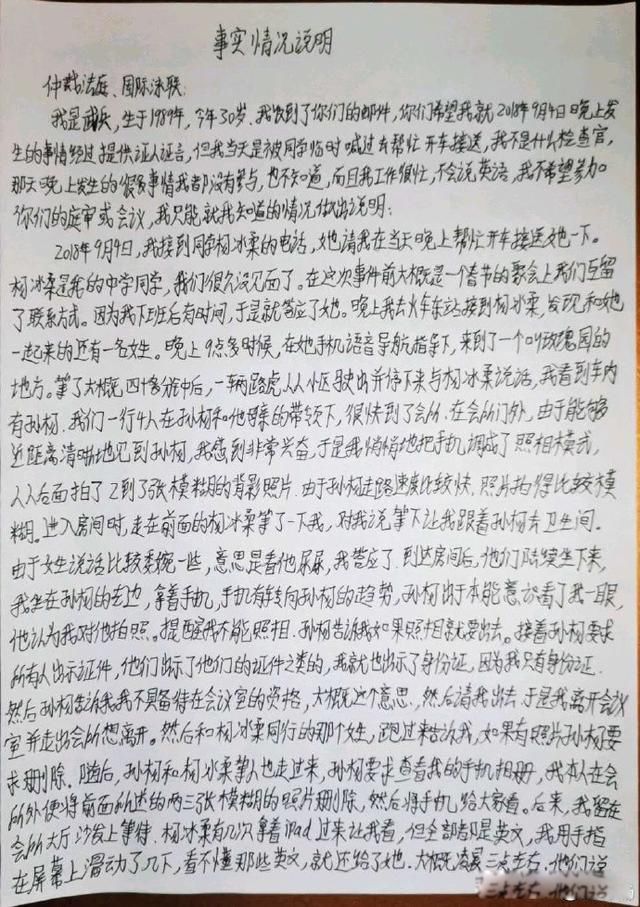 事实情况说明
仲裁法庭、国际泳联:
我是 生于1989年,今年30岁.我收到了你们的邮件,你们希望我就2018年9月4日晚上发
生的事情经过提供证人证言,但我当天是被同学临时喊过去帮忙开车接送,我不是什么检查官,
那天晚上发生的很多事情我都没有参与,也不知道,而且我工作很忙,不会说英语,我不希望参加
你们的庭审或会议,我只能就我知道的情况做出说明:
2018年9月4日,我接到同学杨冰柔的电话,她请我在当天晚上帮忙开车接送她一下。
杨冰柔是我的中学同学,我们很久没见面了。在这次事件前大概是一个春节的聚会上我们互留
了联系方式。因为我下班后有时间,于是就答应了她。晚上我去火车东站接到杨冰柔,发现和她
一起来的还有一名女生。晚上9点多时候,在她手机语音导航指导下,来到了一个叫玫瑰园的
地方。等了大概四十多分钟后,一辆路虎从小区驶出并停下来与杨冰柔说话,我看到车内
有孙杨.我们一行4人在孙杨和他母亲的带领下,很快到了会所.在会所门外,由于能够
近距离清晰地见到孙杨,我感到非常兴奋,于是我悄悄地把手机调成了照相模式,
从后面拍了2到了3张模糊的背影照片.由于孙杨走路速度比较快.照片拍得比较模
糊。进入房间时,走在前面的杨冰柔等了一下我,对我说等下让我跟着孙杨去卫生间.
由于女生说话比较委婉一些,意思是看他尿尿,我答应了.到达房间后,他们陆续坐下来,
我坐在孙杨的左边,拿着手机,手机有转向孙杨的趋势,孙杨出于本能意识看了我一眼,
他认为我对他拍照。提醒我不能照相.孙杨告诉我如果照相就要出去。接着孙杨要求
所有人出示证件,他们出示了他们的证件之类的,我就也出示了身份证,因为我只有身份证.
然后孙杨告诉我我不具备待在会议室的资格,大概这个意思.然后请我出去.于是我离开会议
室并走出会所想离开。然后和杨冰柔同行的那个女生,跑过来告诉我,如果有照片孙杨要
求删除.随后,孙杨和杨冰柔等人也走过来,孙杨要求查看我的手机相册,我本人在会
所外便将前面所述的两三张模糊的照片删除,然后将手机给大家看。后来,我留在
会所大厅沙发上等待.杨冰柔有几次拿着ipad过来让我看,但全部都是英文,我用手指
在屏幕上滑动了几下,看不懂那些英文,就还给了她.大概凌晨三点左右.他们说
三点左右.他们说